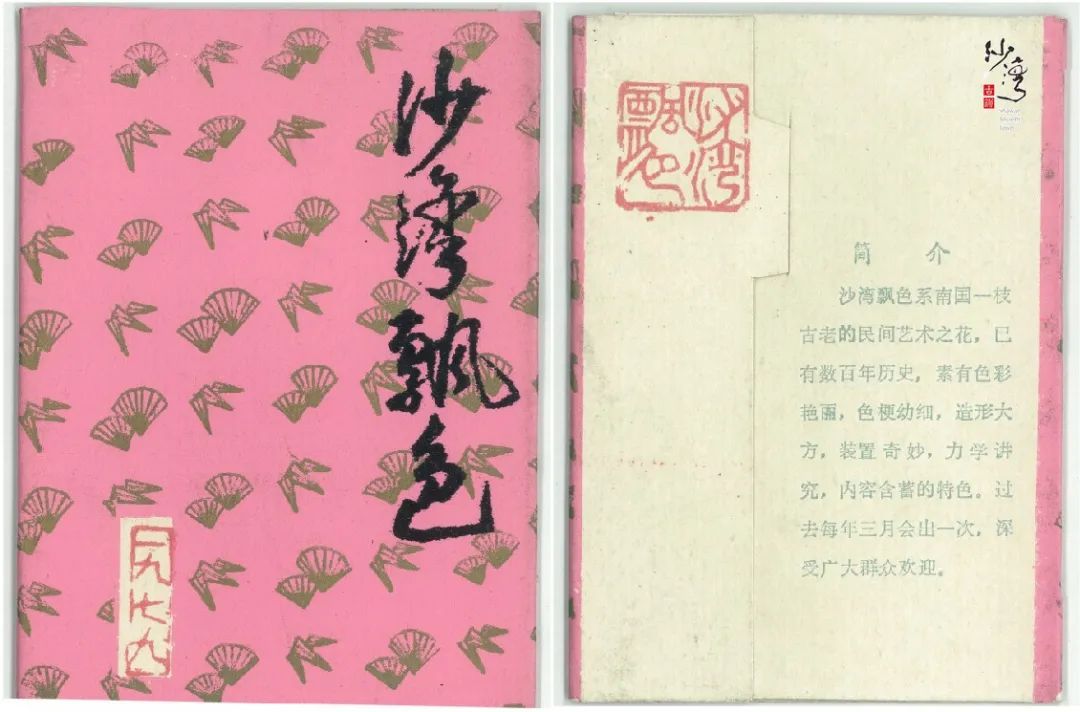 沙湾飘色
一九七九
沙湾
飘色
沙湾
古镇
简 介
沙湾飘色系南国一枝
古老的民间艺术之花，已
有数百年历史，素有色彩
艳丽，色梗幼细，造形大
方，装置奇妙，力学讲
究，内容含蓄的特色。过
去每年三月会出一次，深
受广大群众欢迎。